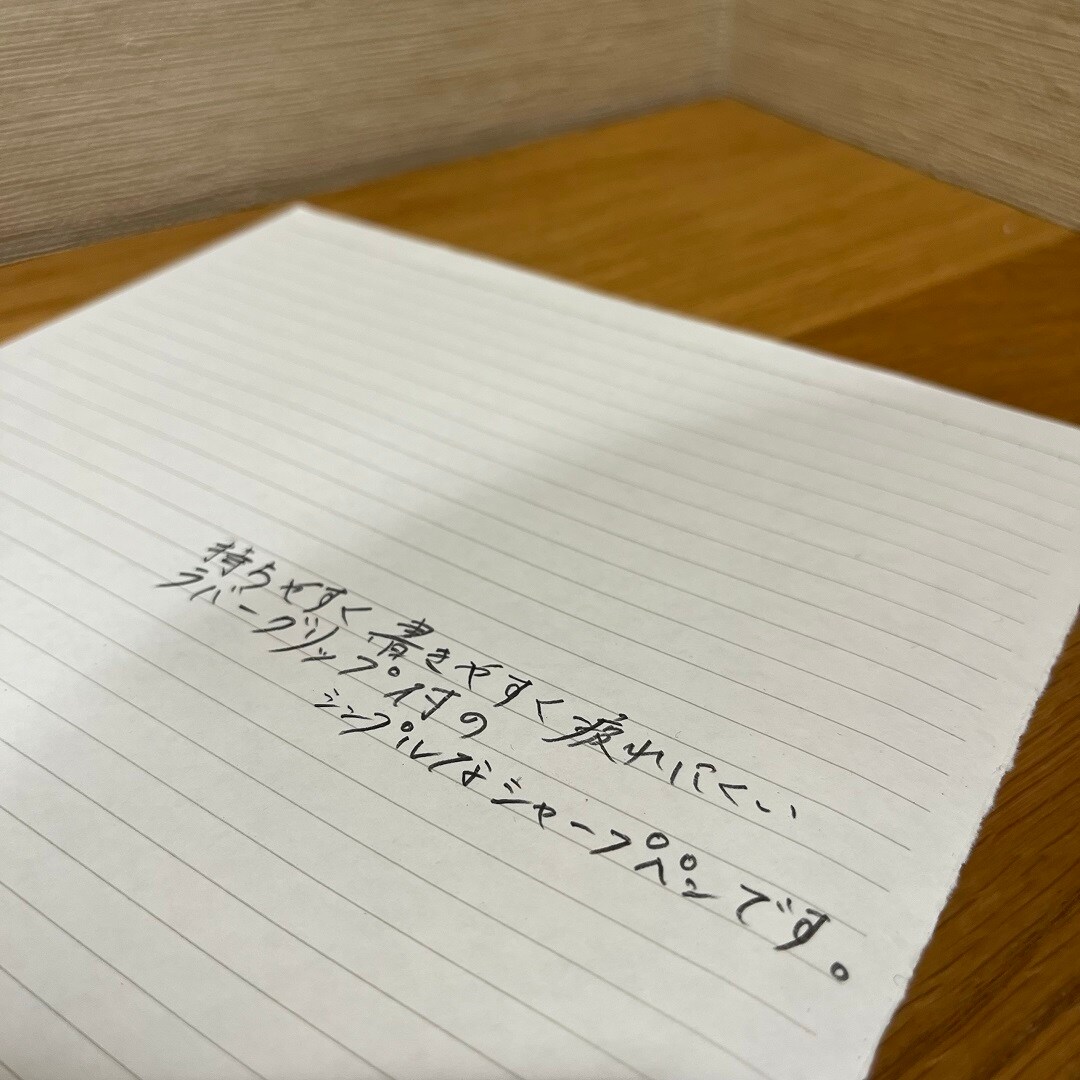 持ちやすく書きやすく疲れにくい
ラバーグリップ付の
シンプルなシャープペンです。